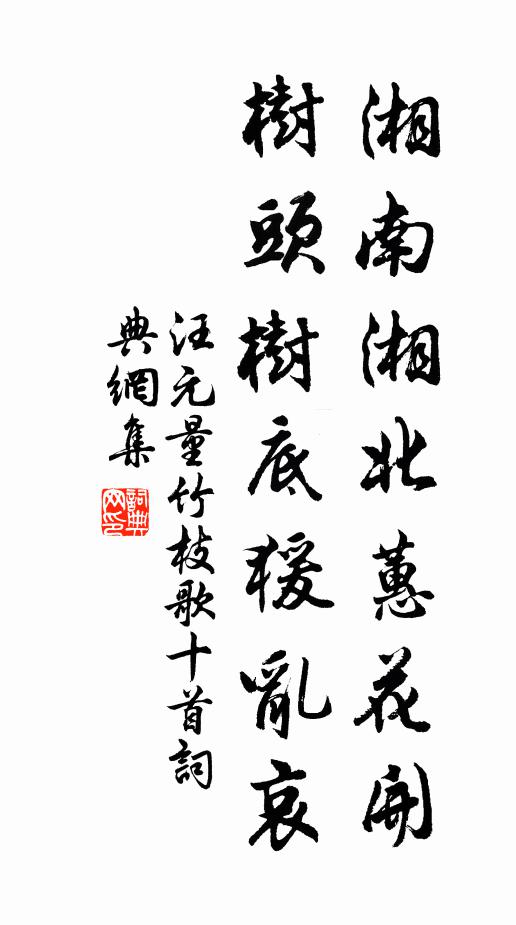 湘南湘北蕙花開
樹頭樹底猨亂哀
汪元量竹枝歌十首詞
典網集
詞典网印